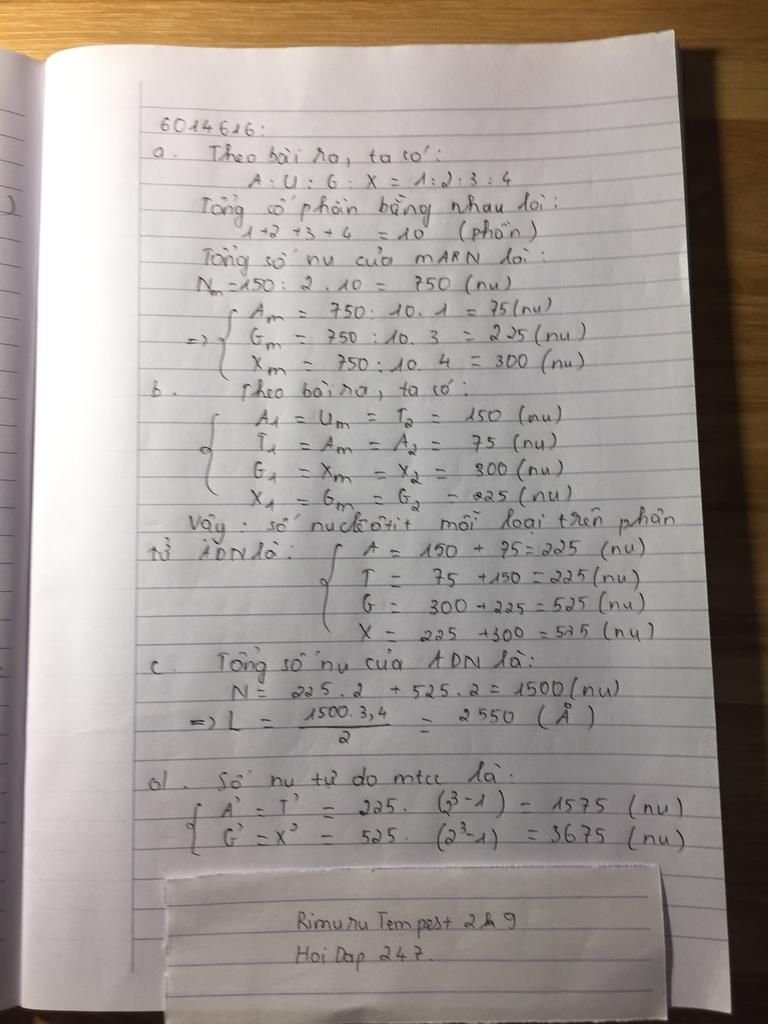 6014616:
a. Theo bài ra, ta có:
A : U : G : X = 1 : 2 : 3 : 4
Tổng số phần bằng nhau là:
1+2+3+4 = 10 (phần)
Tổng số nu của mARN là:
Nm = 150 : 2 . 10 = 750 (nu)
=> { Am = 750 : 10 . 1 = 75 (nu)
Gm = 750 : 10 . 3 = 225 (nu)
Xm = 750 : 10 . 4 = 300 (nu)
b. Theo bài ra, ta có:
{ A1 = Um = T2 = 150 (nu)
T1 = Am = A2 = 75 (nu)
G1 = Xm = X2 = 300 (nu)
X1 = Gm = G2 = 225 (nu)
Vậy : số nuclêôtit mỗi loại trên phân
tử ADN là: { A = 150 + 75 = 225 (nu)
T = 75 + 150 = 225 (nu)
G = 300 + 225 = 525 (nu)
X = 225 + 300 = 525 (nu)
c. Tổng số nu của ADN là:
N = 225 . 2 + 525 . 2 = 1500 (nu)
=> L = 1500 . 3,4 / 2 = 2550 (Å)
d. Số nu tự do mtcc là:
{ A' = T' = 225 . (2³-1) = 1575 (nu)
G' = X' = 525 . (2³-1) = 3675 (nu)
Rimuru Tempest 2k9
Hoi Dap 247.